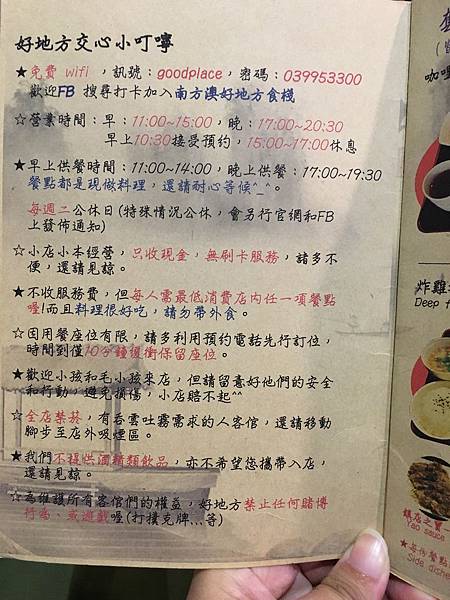 好地方交心小叮嚀
★免費 wifi ，訊號：goodplace，密碼：039953300
歡迎FB 搜尋打卡加入南方澳好地方食棧
☆營業時間：早：11:00~15:00，晚：17:00~20:30
早上10:30接受預約，15:00~17:00休息
★早上供餐時間：11:00~14:00，晚上供餐：17:00~19:30
餐點都是現做料理，還請耐心等候^_^。
每週二公休日(特殊情況公休，會另行官網和FB
上發佈通知)
☆小店小本經營，只收現金，無刷卡服務，諸多不
便，還請見諒。
★不收服務費，但每人需最低消費店內任一項餐點
喔!而且料理很好吃，請勿帶外食。
☆因用餐座位有限，請多利用預約電話先行訂位，
時間到僅10分鐘緩衝保留座位。
★歡迎小孩和毛小孩來店，但請留意好他們的安全
和行動，避免損傷，小店賠不起^^
☆全店禁菸，有吞雲吐霧需求的人客倌，還請移動
腳步至店外吸煙區。
★我們不提供酒精類飲品，亦不希望您攜帶入店，
還請見諒。
☆為維護所有客倌們的權益，好地方禁止任何賭博
行為、或遊戲喔(打撲克牌...等)
咖哩
炸雞
Deep f
鎮店之寶
Yao sauce
★每份餐點
Side dishe